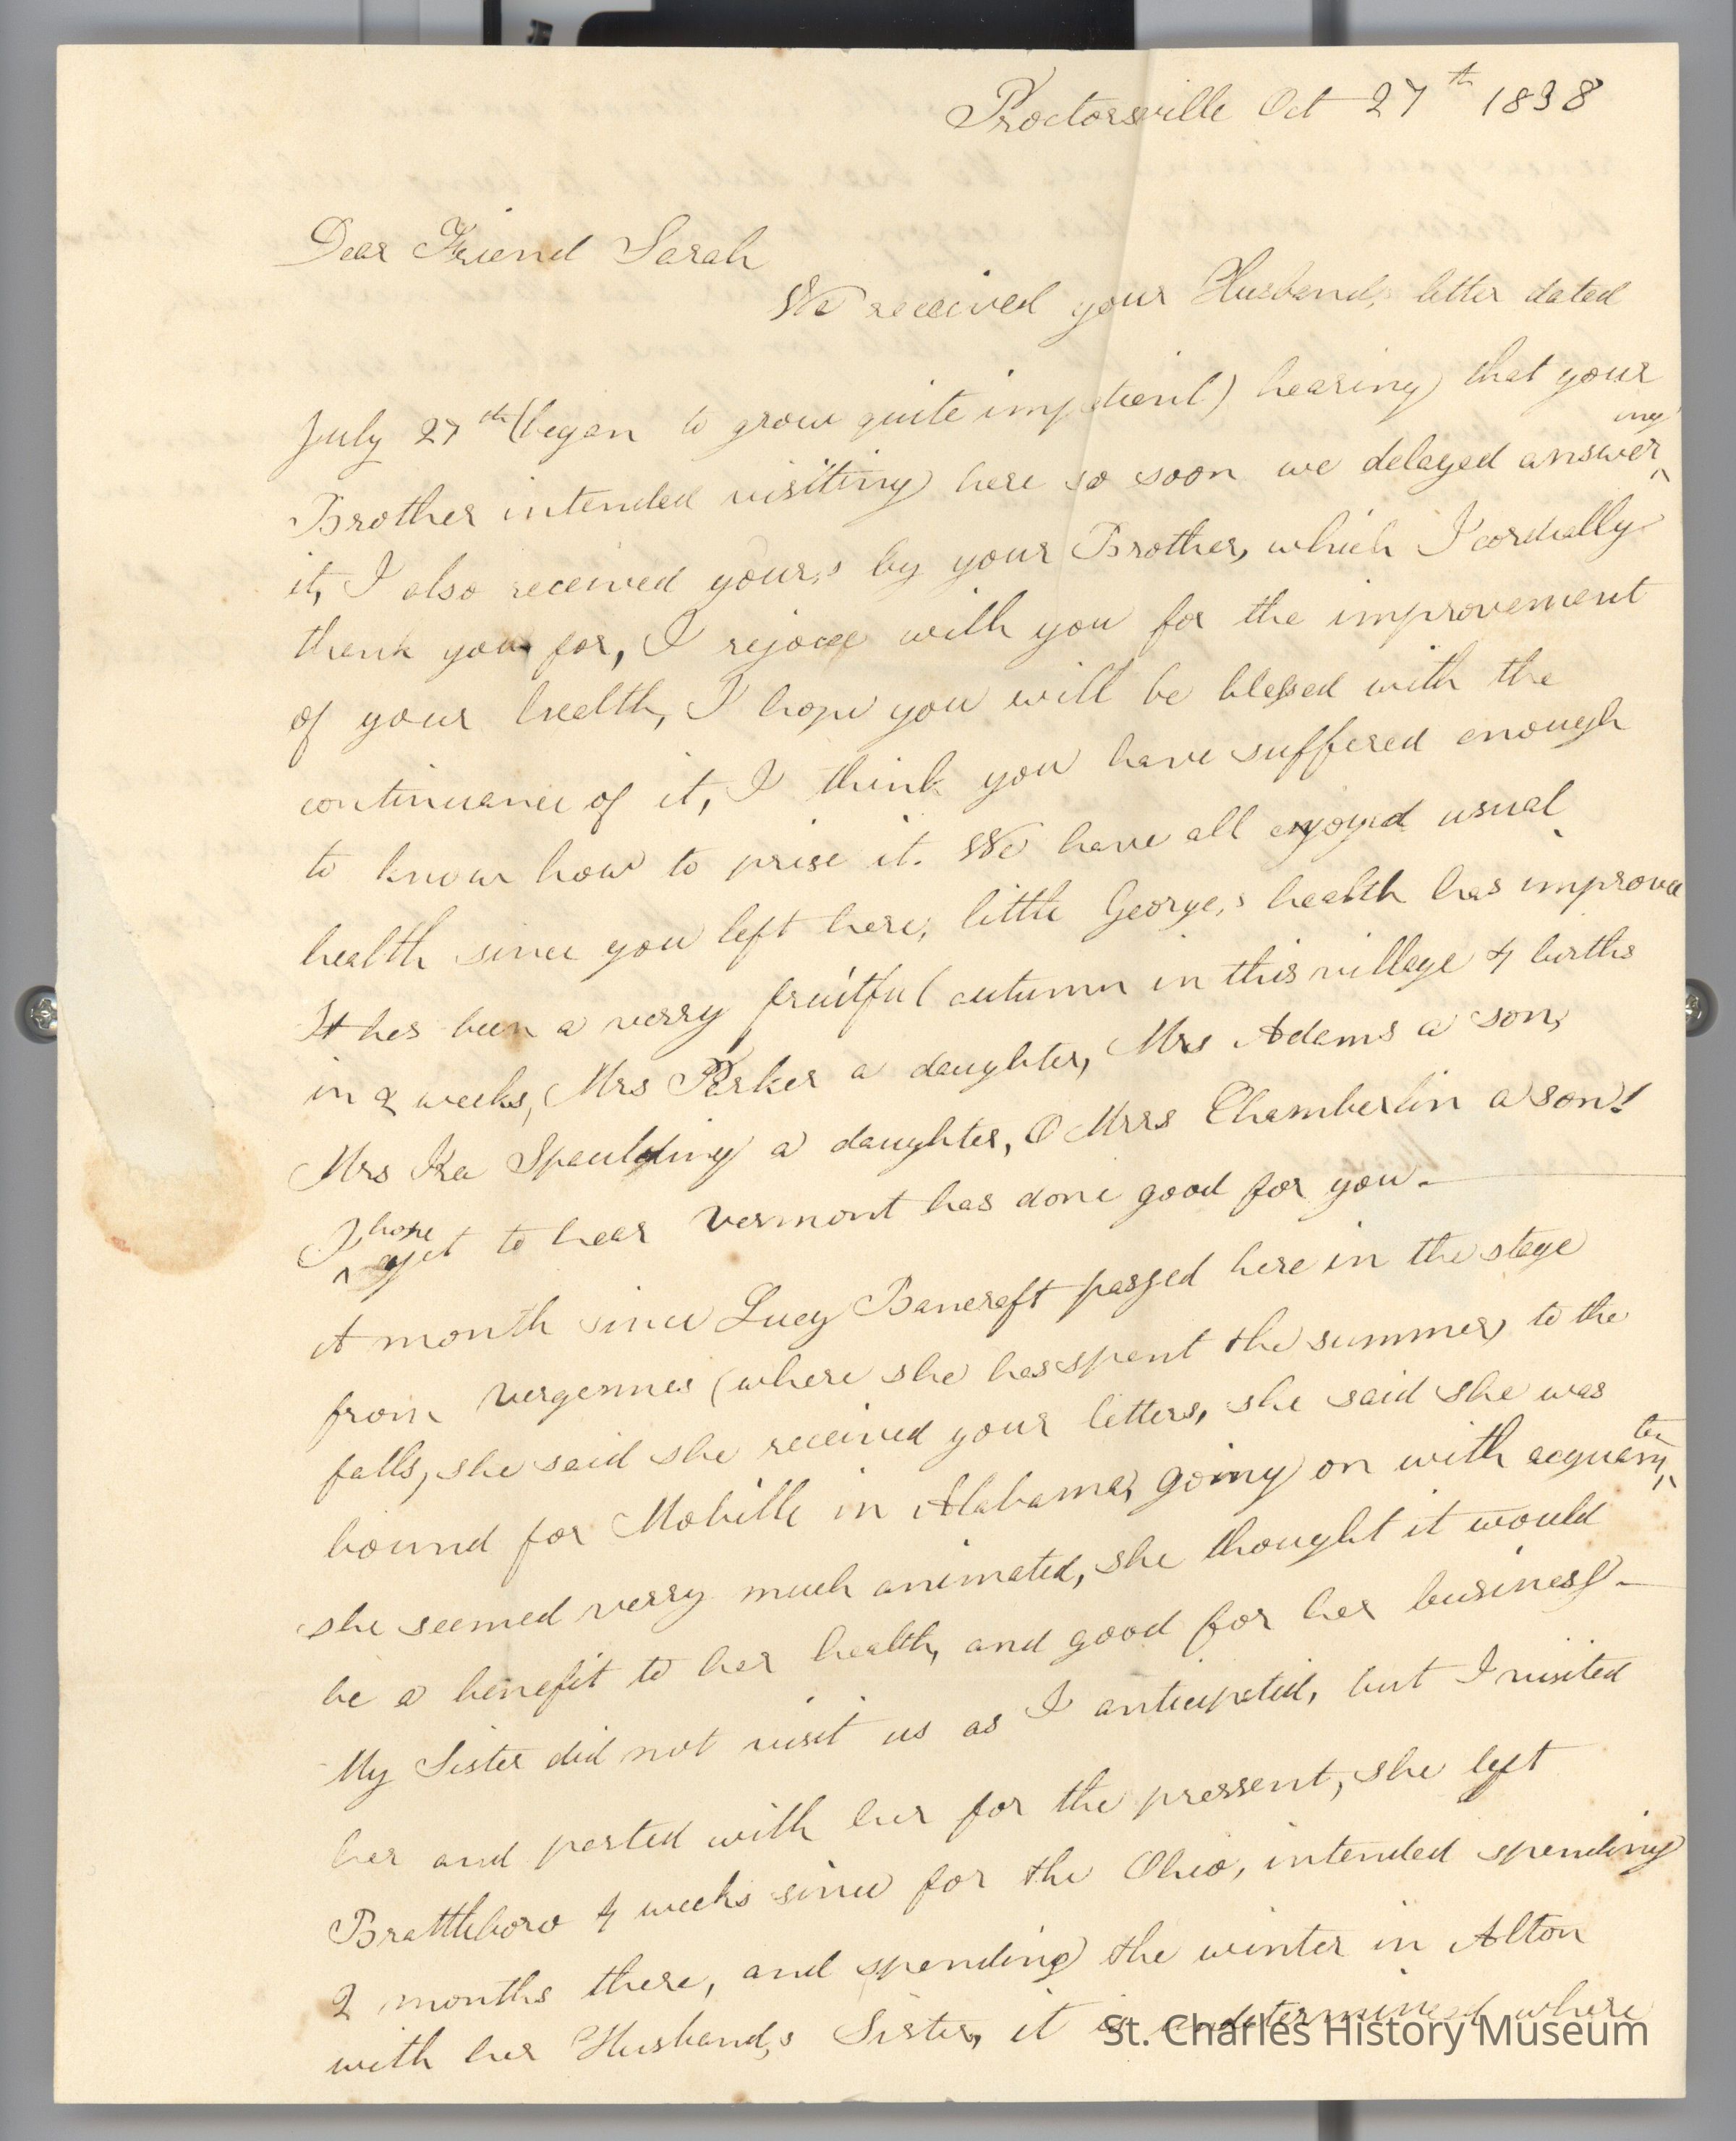 Proctorsville Oct 27th 1838
Dear Friend Sarah
We received your Husband, letter dated
July 27th (began to grow quite impatient) hearing that your
Brother intended visiting here so soon we delayed answer
ing
it, I also received your,s by your Brother, which I cordially
thank you for, I rejoice with you for the improvement
of your health, I hope you will be blessed with the
continuance of it, I think you have suffered enough
to know how to prise it. We have all enjoyed usual
health since you left here, little George,s health has improved
It has been a verry fruitful autumn in this village 4 births
in 2 weeks, Mrs Parker a daughter, Mrs Adams a son,
Mrs Ira Spaulding a daughter, O Mrss Chamberlin a son!
I hope yet to hear Vermont has done good for you.
A month since Lucy Bancroft passed here in the stage
from Vergennes (where she has spent the summer) to the
falls, she said she received your letters, she said she was
bound for Mobille in Alabama, going on with acquain
ten
she seemed verry much animated, she thought it would
be a benefit to her health, and good for her business.
My Sister did not visit us as I anticipated, but I visited
her and parted with her for the pressent, she left
Brattleboro 4 weeks since for the Ohio, intended spending
2 months there, and spending the winter in Alton
with her Husband,s Sister, it is undetermined where
St. Charles History Museum